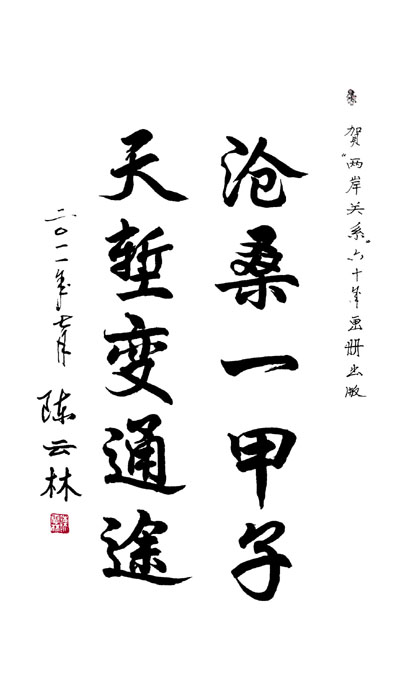 贺"两岸关系"六十年画册出版
沧桑一甲子
天堑变通途
二〇一一年七月
陈云林